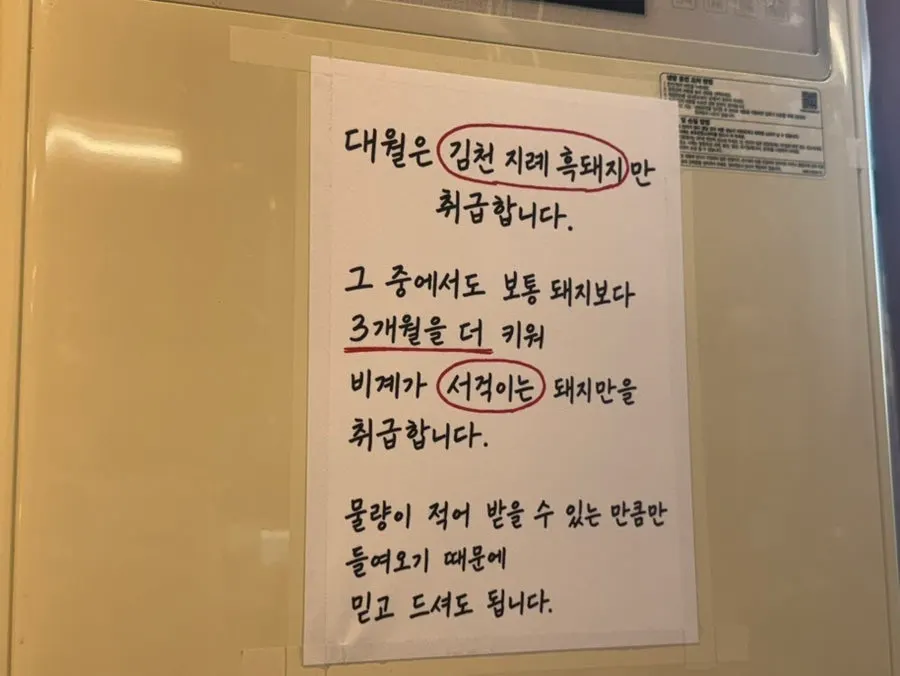 대월은 김천 지례 흑돼지만
취급합니다.
그 중에서도 보통 돼지보다
3개월을 더 키워
비계가 서걱이는 돼지만을
취급합니다.
물량이 적어 받을 수 있는 만큼만
들여오기 때문에
믿고 드셔도 됩니다.